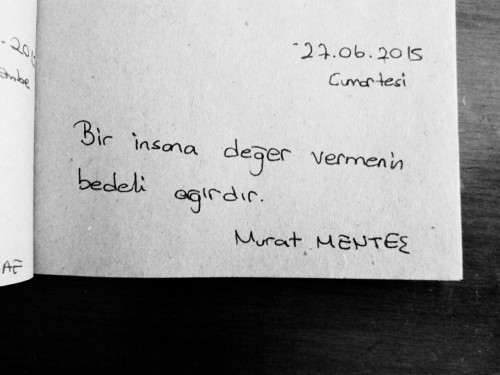 -2015
-27.06.2015
Cumartesi
Bir insana değer vermenin
bedeli ağırdır.
Murat MENTEŞ